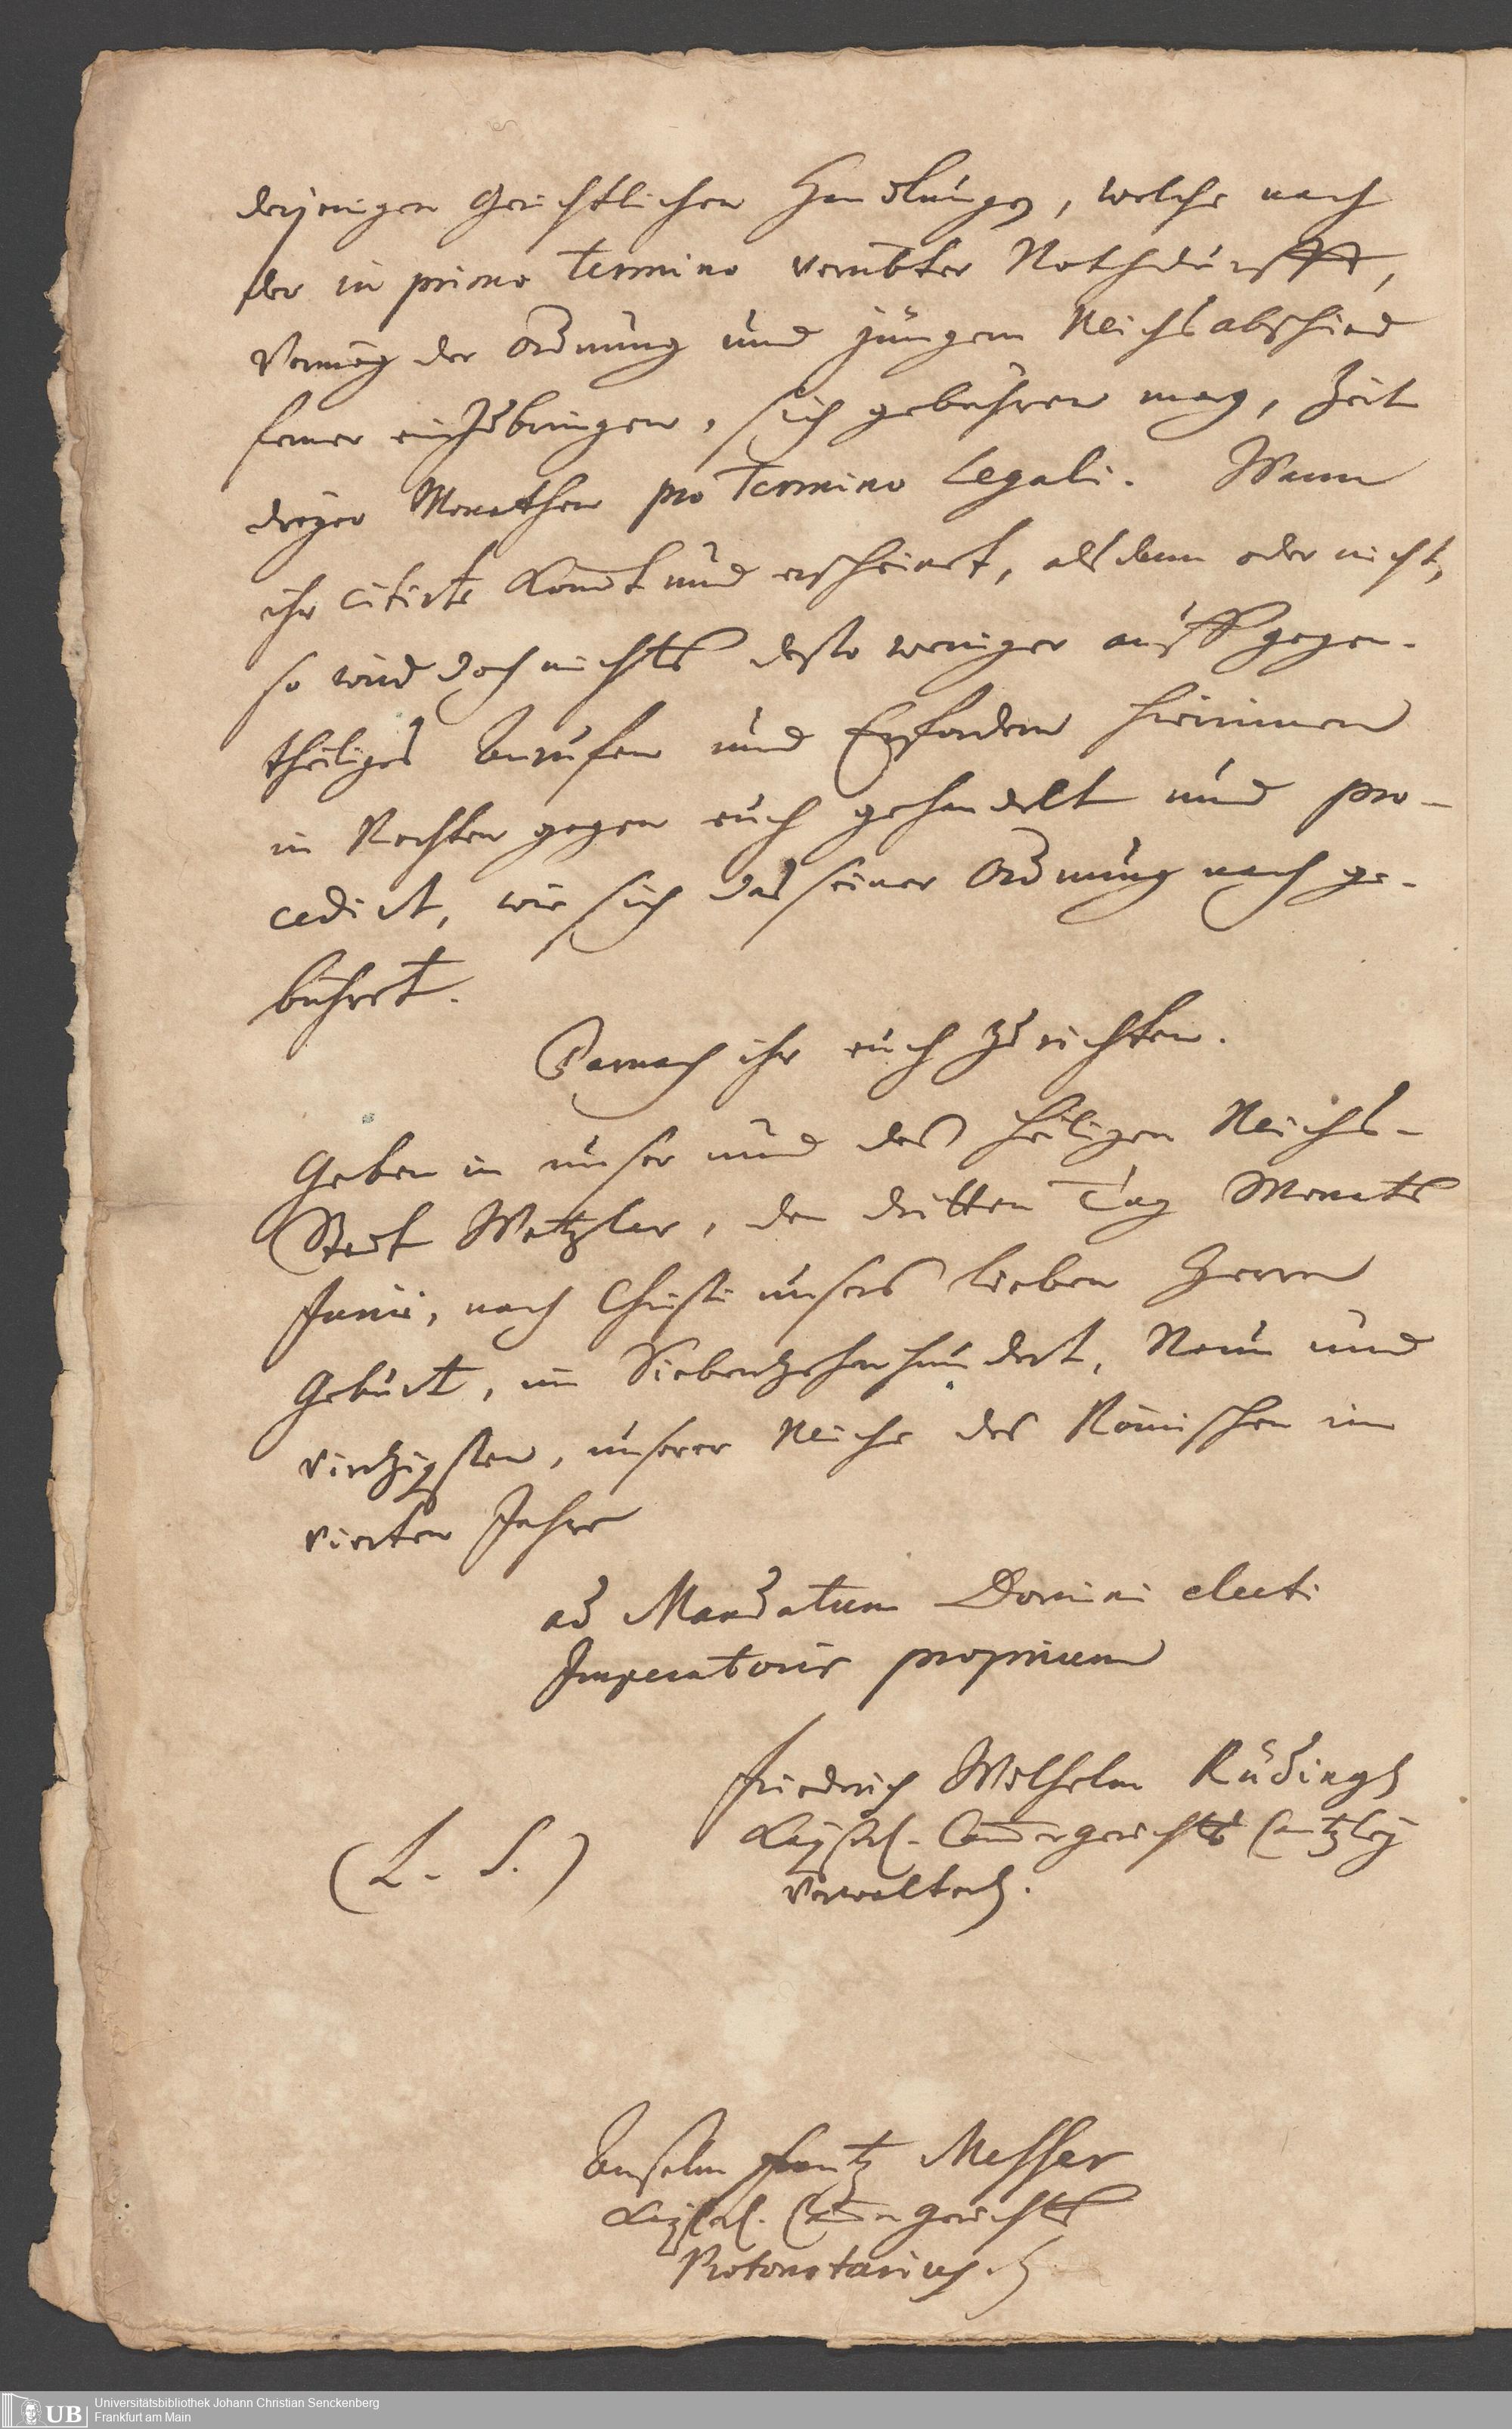 derjenigen Gerichtlichen Handlungen, welche nach
der in primo Termino verübter Nothdurfft,
Vermög der Ordnung und jüngern Reichsabschied
ferner einzubringen, sich gebühren mag, Zeit
dreyer Monathen pro Termino Legali. Wann
ihr citirte kom̄t und erscheinet, alsdann oder nicht,
so wird doch nichts desto weniger auff gegen-
theiliges Anrufen und Erfordern hierinnen
in Rechten gegen euch gehandelt und pro-
cedirt, wie sich das seiner Ordnung nach ge-
bühret.
Darnach ihr euch zu richten.
Geben in unser und des Heiligen Reichs-
Stadt Wetzlar, den dritten Tag Monats
Junii, nach Christi unsers lieben Herrn
Geburt, im Siebentzehenhundert, Neun und
viertzigsten, unserer Reiche des Römischen im
vierten Jahre
ad Mandatum Domini electi
Imperatoris proprium
Friedrich Wilhelm Rüding
Kayserl. Cam̄ergerichts Cantzley
Verwalter.
(L. S.)
Anselm Frantz Messer
Kayserl. Cam̄ergerichts
Protonotarius.
Universitätsbibliothek Johann Christian Senckenberg
Frankfurt am Main
UB